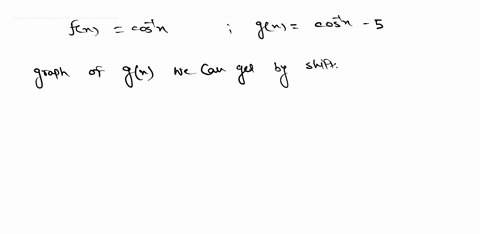 f(x) = cos⁻¹x ; g(x) = cos⁻¹x - 5
graph of g(x) we can get by shift